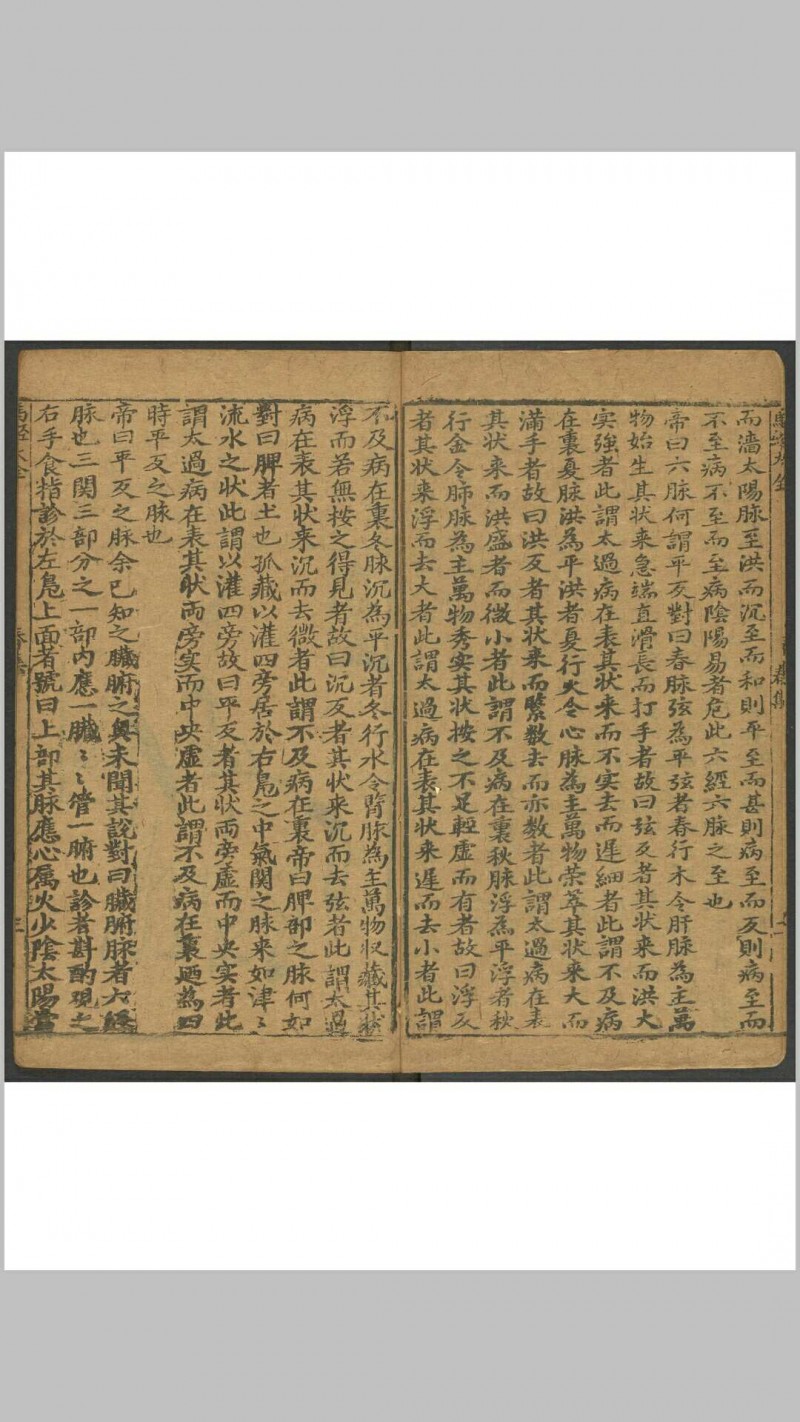 而濇太陽脉至洪而沉至而和則平至而甚則病至而反則病至而
不至病不至而至病陰陽易者危此六經六脉之至也
帝曰六脉何謂平反對曰春脉弦為平弦者春行木令肝脉為主萬
物始生其状来急端直滑長而打手者故曰弦反者其状来而洪大
实強者此謂太過病在表其状来而不实去而遲細者此謂不及病
在裏夏脉洪為平洪者夏行火令心脉為主萬物荣萃其状来大而
滿手者故曰洪反者其状来而緊数去而亦数者此謂太過病在表
其状来而洪盛者而微小者此謂不及病在裏秋脉浮為平浮者秋
行金令肺脉為主萬物秀实其状按之不足輕虛而有者故曰浮反
者其状来浮而去大者此謂太過病在表其状来遲而去小者此謂
不及病在裏冬脉沉為平沉者冬行水令腎脉為主萬物収藏其狀
浮而若無按之得見者故曰沉反者其状来沉而去弦者此謂太過
病在表其状来沉而去微者此謂不及病在裏帝曰脾部之脉何如
對曰脾者土也孤藏以灌四旁居於右鳬之中氣関之脉来如津〻
流水之状此謂以灌四旁故曰平反者其状両旁虛而中央实者此
謂太過病在表其状両旁实而中央虛者此謂不及病在裏廼為四
時平反之脉也
帝曰平反之脉余已知之臟腑之奥未聞其説對曰臟腑脉者六經
脉也三関三部分之一部内應一臟〻管一腑也診者斟酌視之
右手食指診於左鳬上面者號曰上部其脉應心属火少陰太陽當